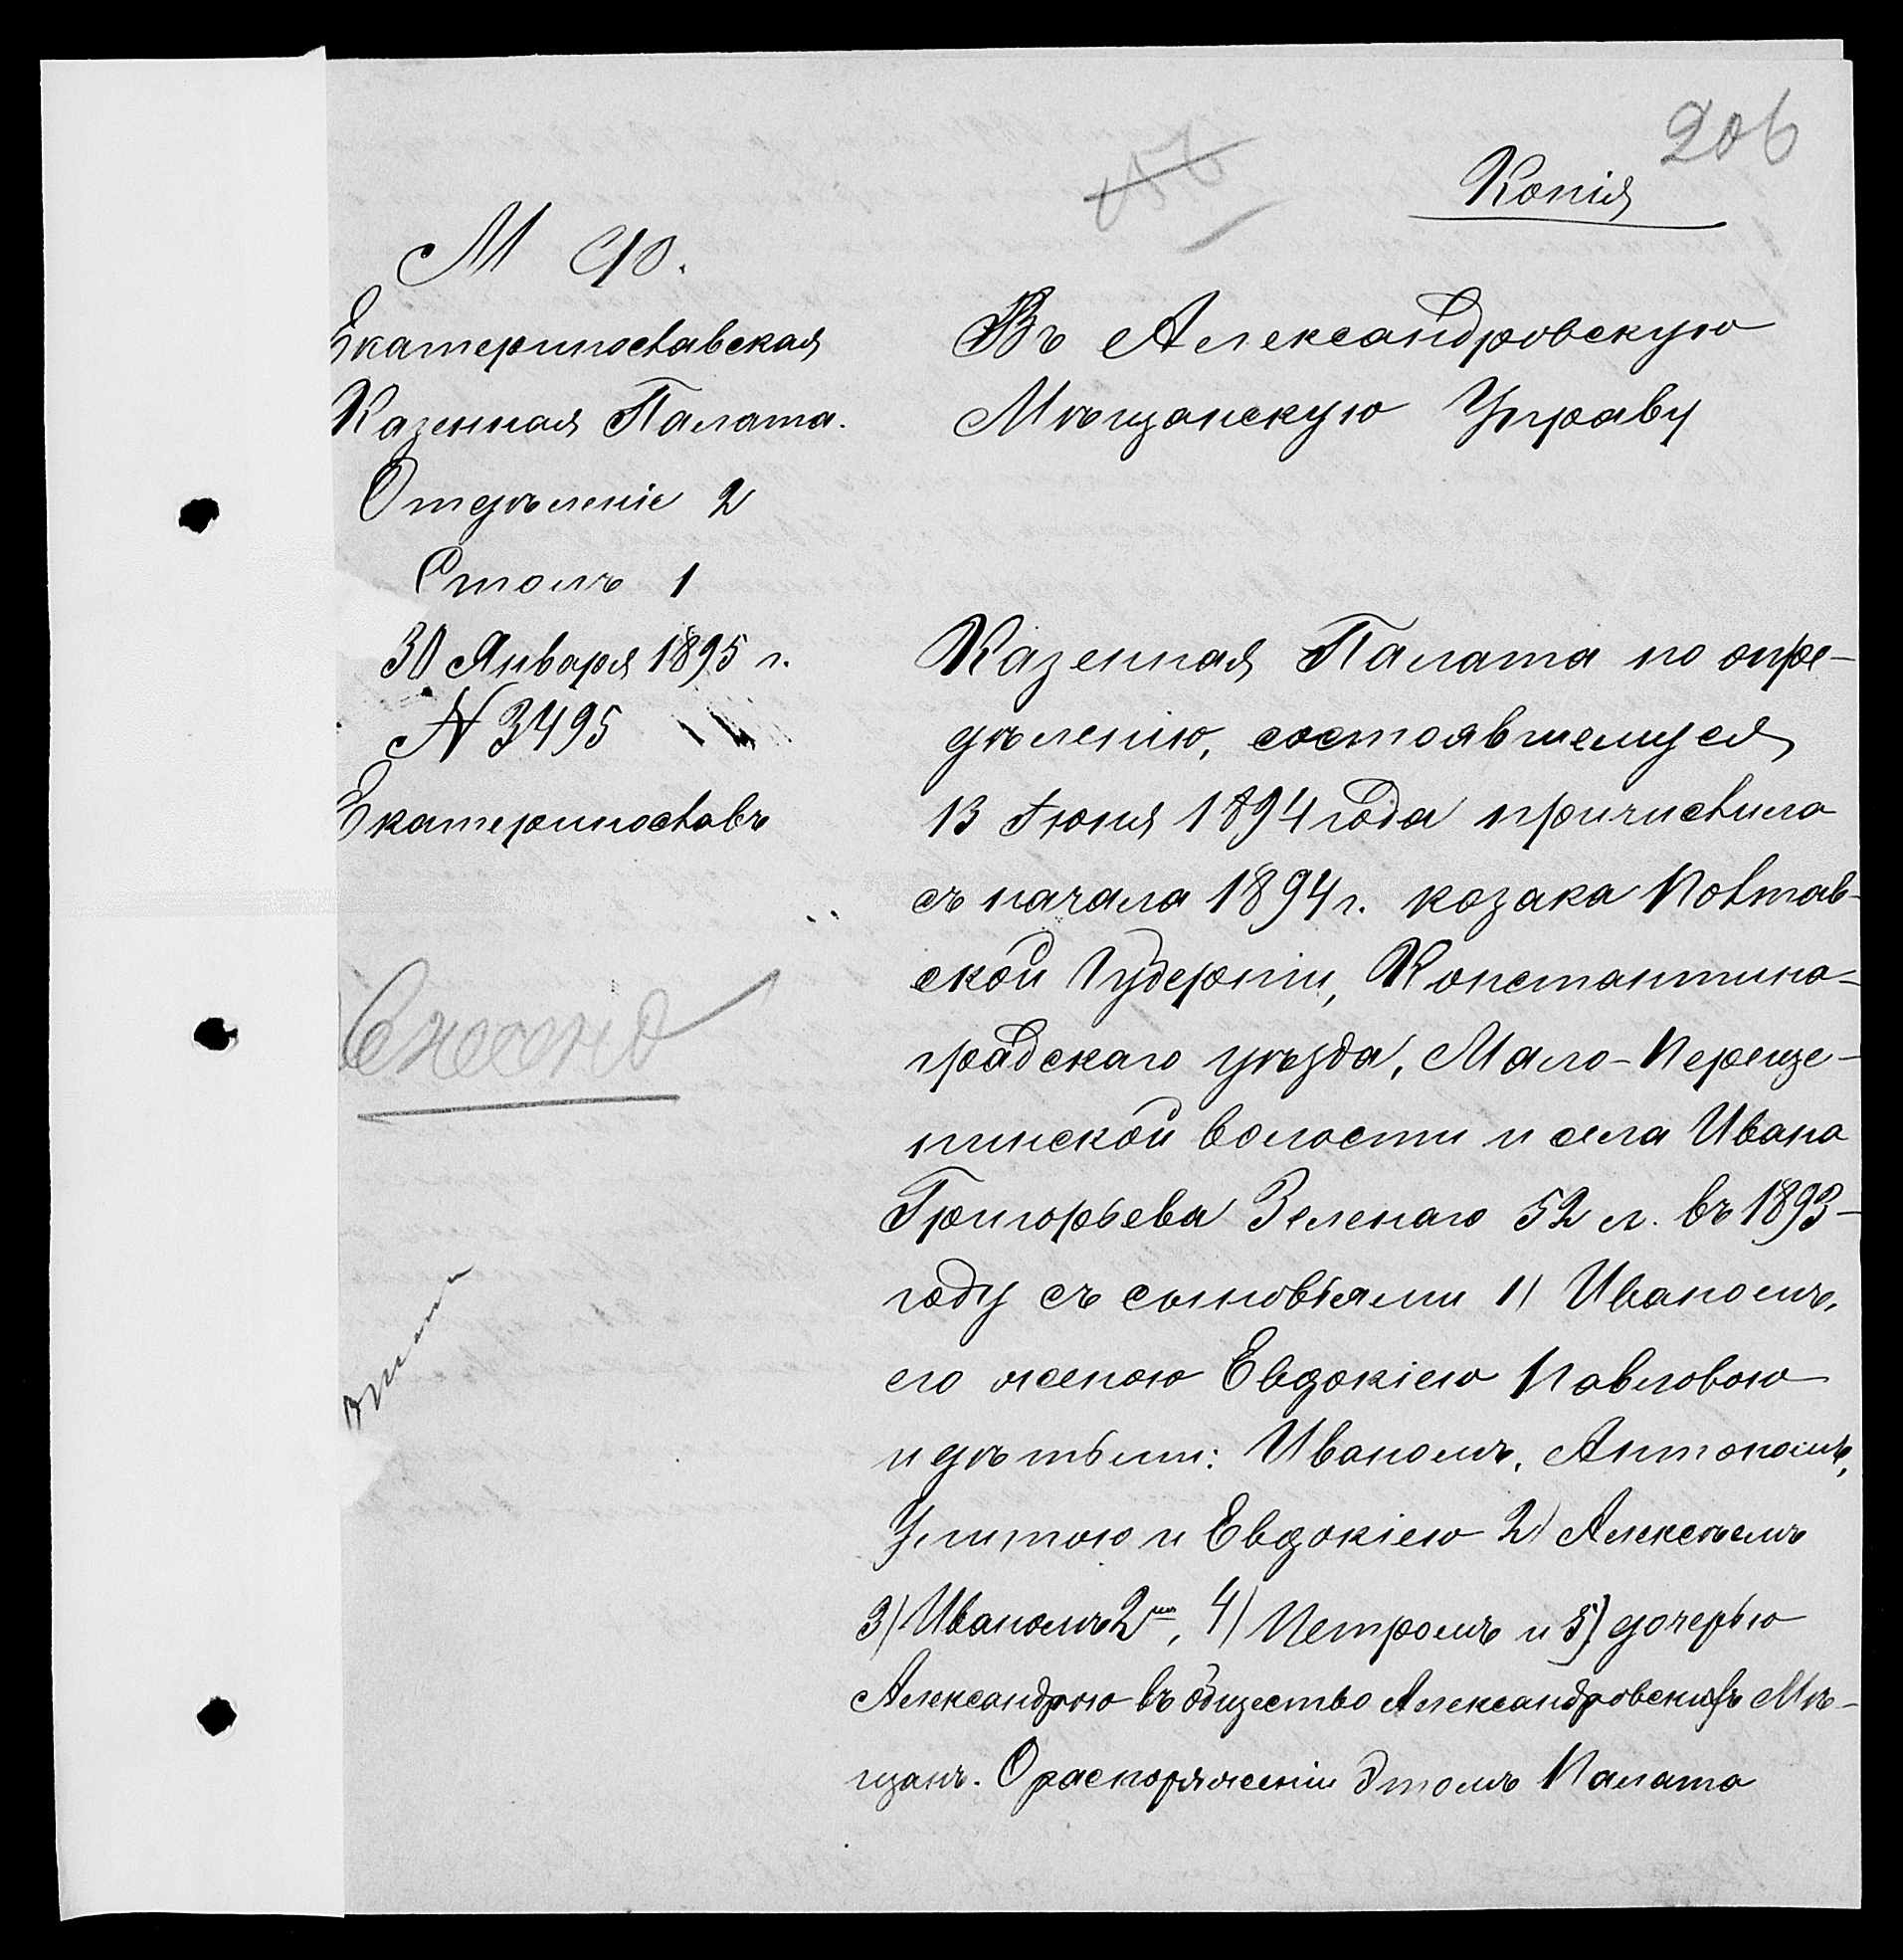 206
Копія
М. Ф.
Екатеринославская
Казенная Палата.
Отдѣленіе 2
Столъ 1
30 Января 1895 г.
№ 3495
Екатеринославъ
Внесено
Въ Александровскую
Мѣщанскую Управу
Казенная Палата по опре-
дѣленію, состоявшемуся
13 Іюня 1894 года причислила
съ начала 1894 г. козака Полтав-
ской Губерніи, Константино-
градскаго уѣзда, Мало-Переще-
пинской волости и села Ивана
Григорьева Зеленаго 52 л. въ 1893-
году съ сыновьями 1) Иваномъ,
его женою Евдокіею Павловою
и дѣтьми: Иваномъ, Антономъ,
Улитою и Евдокіею 2) Алексѣемъ
3) Иваномъ 2мъ, 4) Петромъ и 5) дочерью
Александрою въ общество Александровскихъ Мѣ-
щанъ. О распоряженіи этомъ Палата